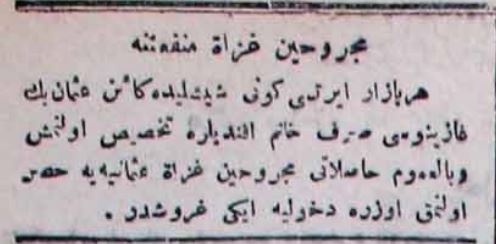 مجروحین غزاة منفعتنه
هربازار ایرتسی كونی شیشلیده كائن عثمان بك
غازینوسی صرف خانم افندیلره تخصیص اولنمش
وبالعموم حاصلاتی مجروحین غزاة عثمانیه یه حصر
اولنمق اوزره دخولیه ایكی غروشدر .